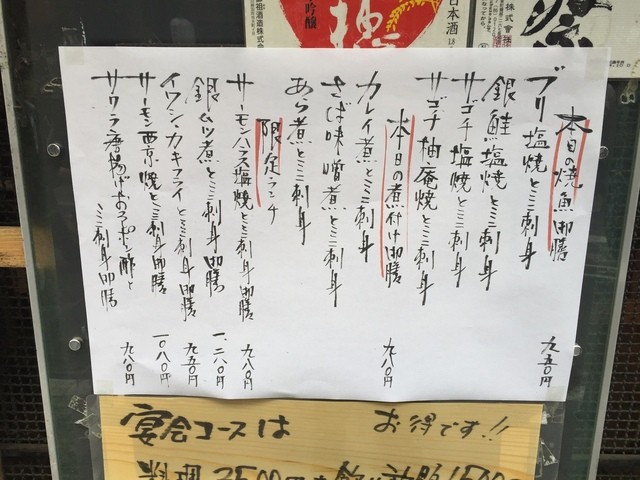 本日の焼魚御膳
ブリ塩焼とミニ刺身 九五〇円
銀鮭塩焼とミニ刺身
サゴチ塩焼とミニ刺身
サゴチ柚庵焼とミニ刺身
本日の煮付け御膳 九八〇円
カレイ煮とミニ刺身
さば味噌煮とミニ刺身
あら煮とミニ刺身
限定ランチ
サーモンハラス塩焼とミニ刺身御膳 九八〇円
銀ムツ煮とミニ刺身御膳 一、二八〇円
イワシ・カキフライとミニ刺身御膳 九五〇円
サーモン西京焼とミニ刺身御膳 一〇八〇円
サワラ唐揚げおろしポン酢と
ミニ刺身御膳 九八〇円
宴会コースは お得です!!
料理3500円
日本酒
吟醸
株式会社